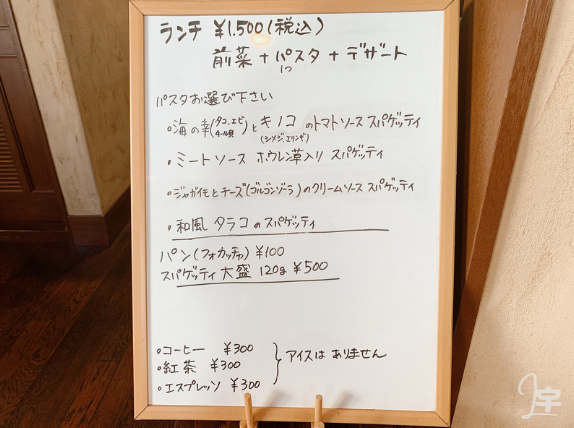 ランチ ¥1,500(税込)
前菜+パスタ+デザート
1つ
パスタお選び下さい
・海の幸(タコ、エビ ムール貝)とキノコ(シメジ、エリンギ)のトマトソース スパゲッティ
・ミートソース ホウレン草入り スパゲッティ
・ジャガイモとチーズ(ゴルゴンゾーラ)のクリームソース スパゲッティ
・和風 タラコのスパゲッティ
パン(フォカッチャ) ¥100
スパゲッティ 大盛 120g ¥500
・コーヒー ¥300
・紅茶 ¥300 アイスは ありません
・エスプレッソ ¥300